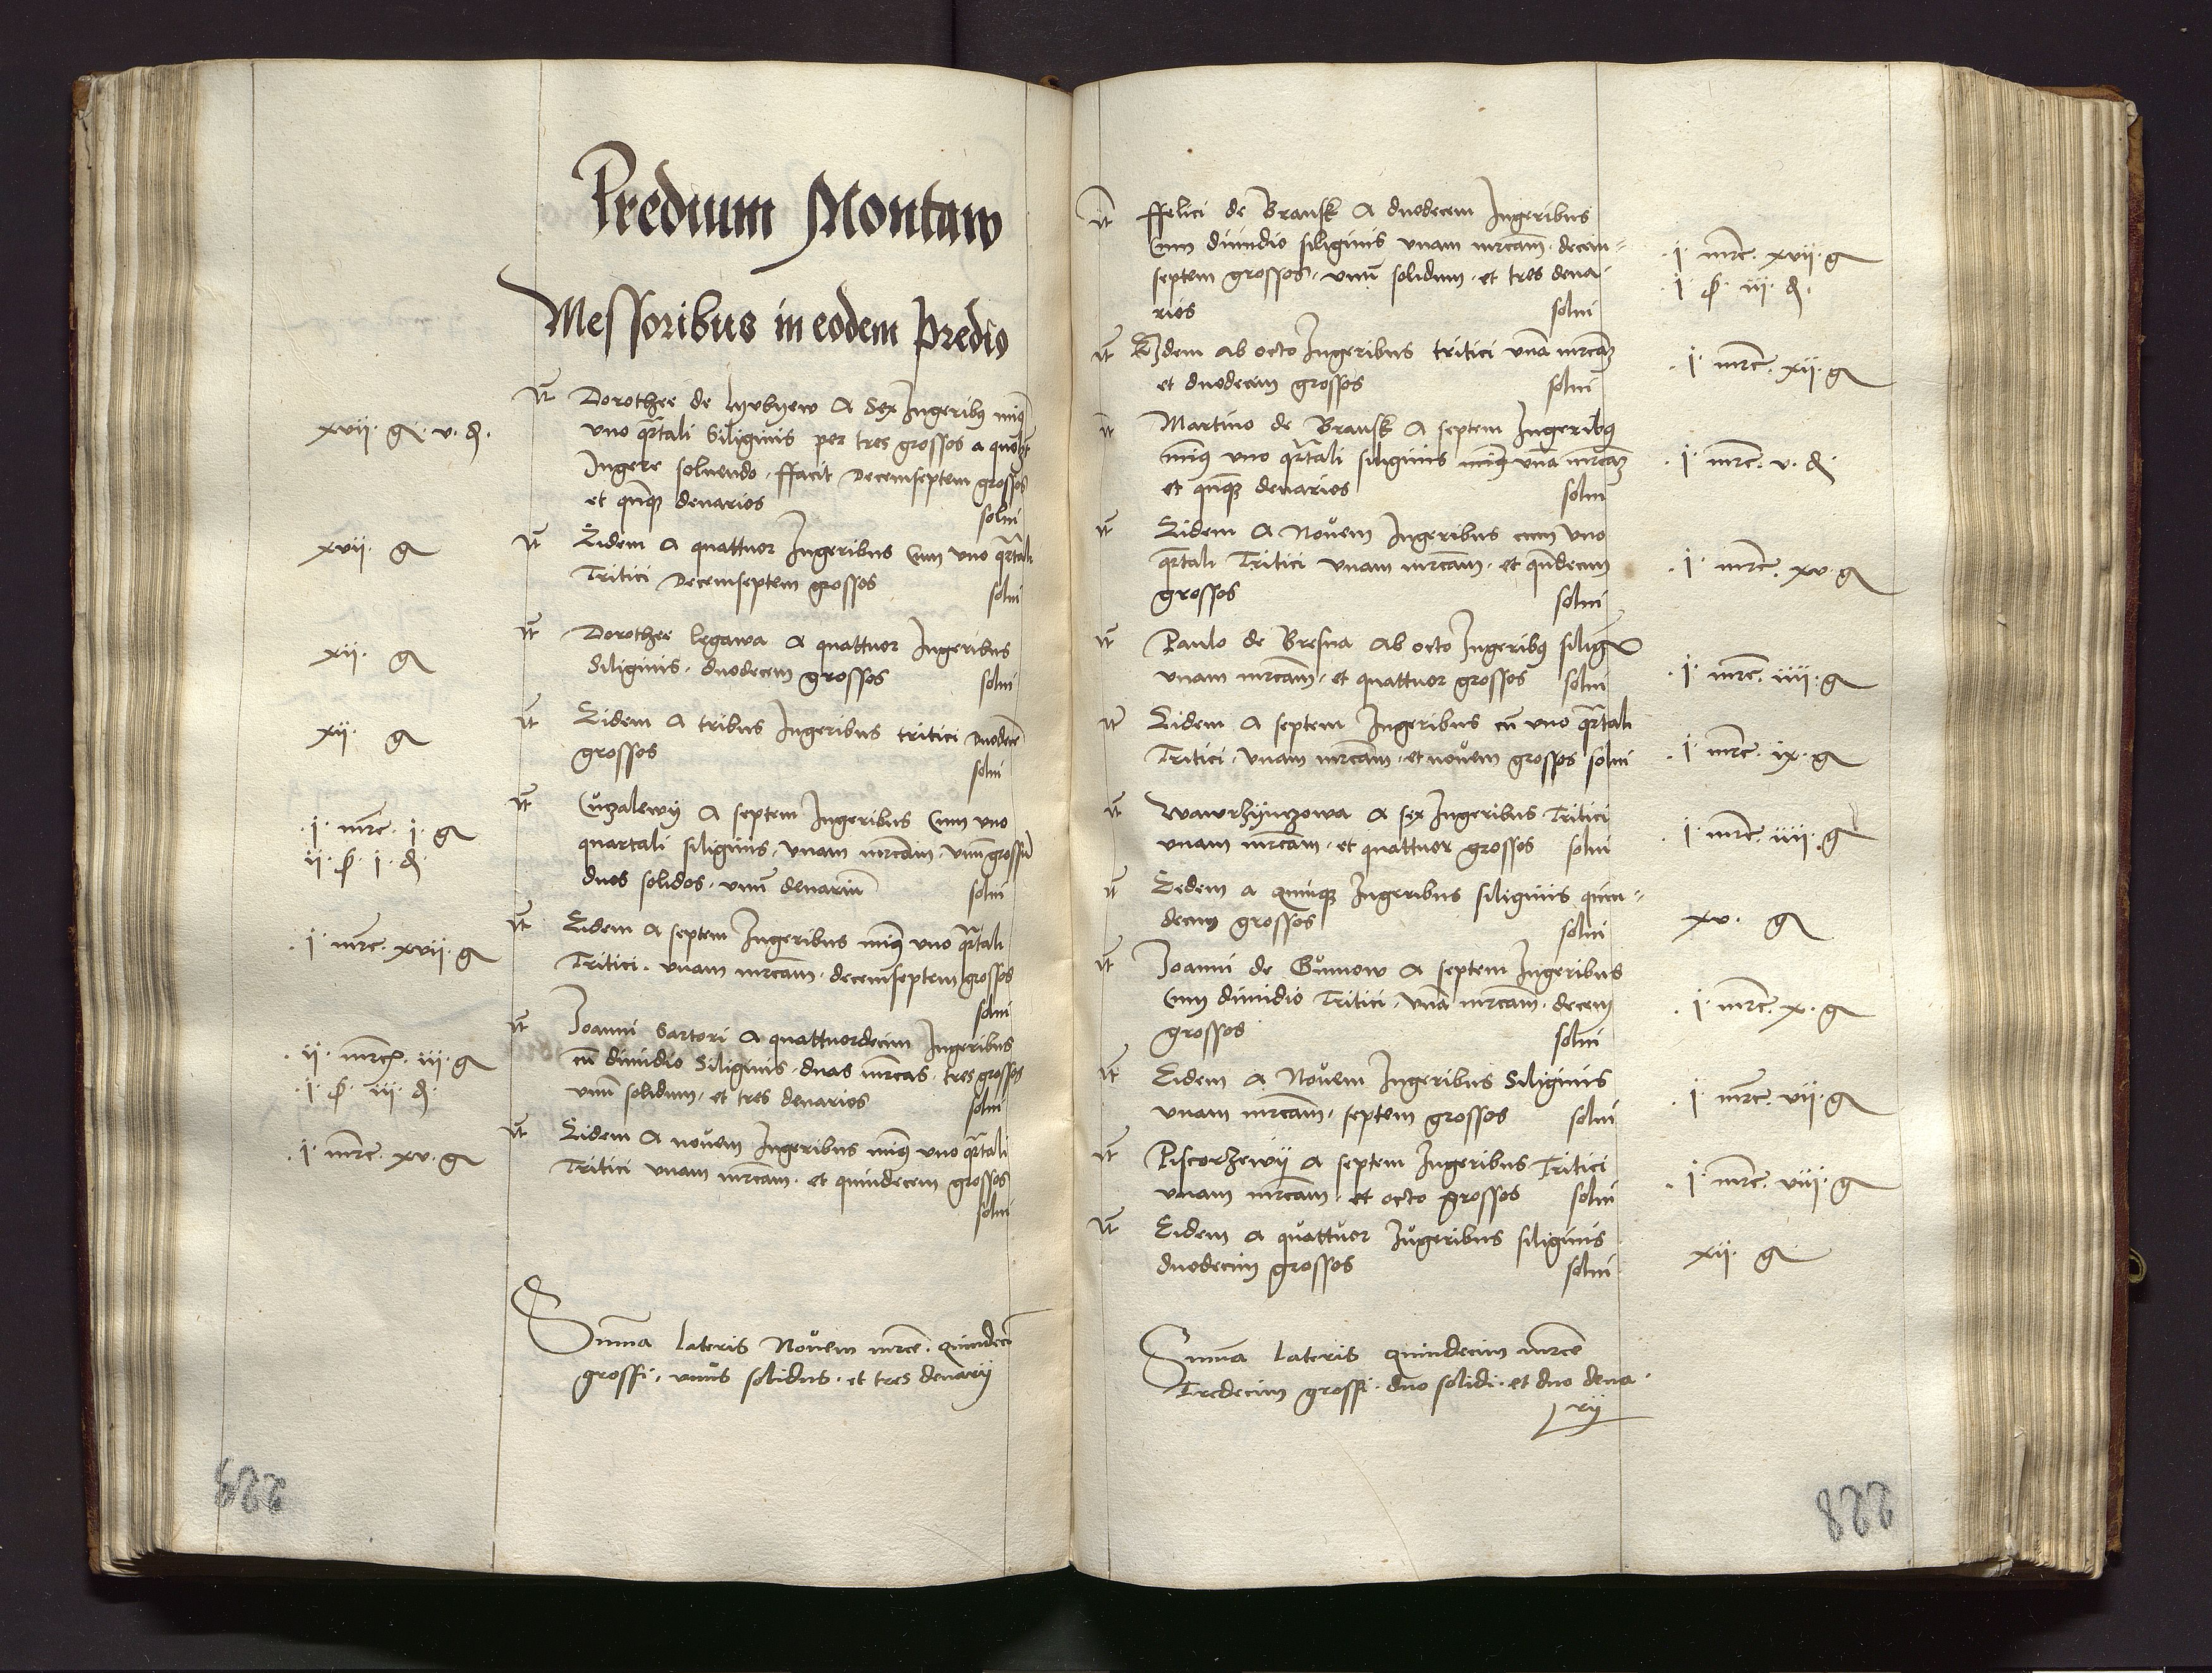 Predium Montaw
Messoribus in eodem predio
xvii · g · v · d ·
It Dorothee de Lyvbyew A Sex Jugeribus minus
uno qrtali Siliginis per tres grossos a quolibet
Jugere soluendo · ffacit Decemseptem grossos
et quinque denarios solui
xvii · g
It Eidem A quattuor Jugeribus Cum vno qrtali
Tritici Decemseptem grossos solui
xii · g
It Dorothee legawa A quattuor Jugeribus
Siliginis · duodecem grossos solui
xii · g
It Eidem A tribus Jugeribus tritici Duodece
grossos solui
· i · mrc · i · g
ii · ß · i · d ·
It Cuzalewij A septem Jugeribus Cum vno
quartali siliginis · vnam mrcam · vnu grossu
duos solidos · vnu denariu solui
· i · mrc · xvii · g
It Eidem A septem Jugeribus minus vno qrtali
Tritici · vnam mrcam · decemseptem grossos
solui
· ii · mrc · iii · g
· i · ß · iii · d ·
It Joanni Sartori A quattuordecim Jugeribus
cu dimidio Siliginis · duas mrcas · tres grossos
vnu solidum · et tres denarios solui
· i · mrc · xv · g
It Eidem A nouem Jugeribus minus vno qrtali
Tritici vnam mrcam · et quindecem grossos
solui
Suma Lateris Nouem mrce · quindeci
grossi · vnus solidus · et tres denarij
229
It ffelici de Bransk A duodecem Jugeribus
Cum dimidio siliginis vnam mrcam · decim=
septem grossos · vnu solidum · et tres dena-
rios solui
· i · mrc · xvii · g
· i · ß · iii · d ·
It Eidem ab octo Jugeribus tritici vna mrcam
et duodecim grossos solui
· i · mrc · xii · g
It Martino de Bransk A septem Jugeribus
minus vno qrtali siliginis vna mrcam
et quinque denarios solui
· i · mrc · v · d ·
It Eidem A Nouem Jugeribus cum vno
qrtali Tritici vnam mrcam · et quindecim
grossos solui
· i · mrc · xv · g
It Paulo de Bresna Ab octo Jugeribus silig
vnam mrcam · et quattuor grossos solui
· i · mrc · iiii · g
It Eidem A septem Jugeribus cu vno qrtali
Tritici · vnam mrcam · et nouem grossos solui
· i · mrc · ix · g
It Wawrzijnczowa A sex Jugeribus Tritici
vnam mrcam · et quattuor grossos solui
· i · mrc · iiii · g
It Eedem a quinque Jugeribus siliginis quin=
decim grossos solui
xv · g
It Joanni de Gunnow A septem Jugeribus
Cum dimidio Tritici · vna mrcam · decem
grossos solui
· i · mrc · x · g
It Eidem A Nouem Jugeribus Siliginis
vnam mrcam · septem grossos solui
· i · mrc · vii · g
It Piscorzewij A septem Jugeribus Tritici
vnam mrcam · et octo grossos solui
· i · mrc · viii · g
It Eidem A quattuor Jugeribus siliginis
duodecim grossos solui
xii · g
Suma Lateris quindecim mrce
Tredecim grossi · duo solidi · et duo dena-
rij
228